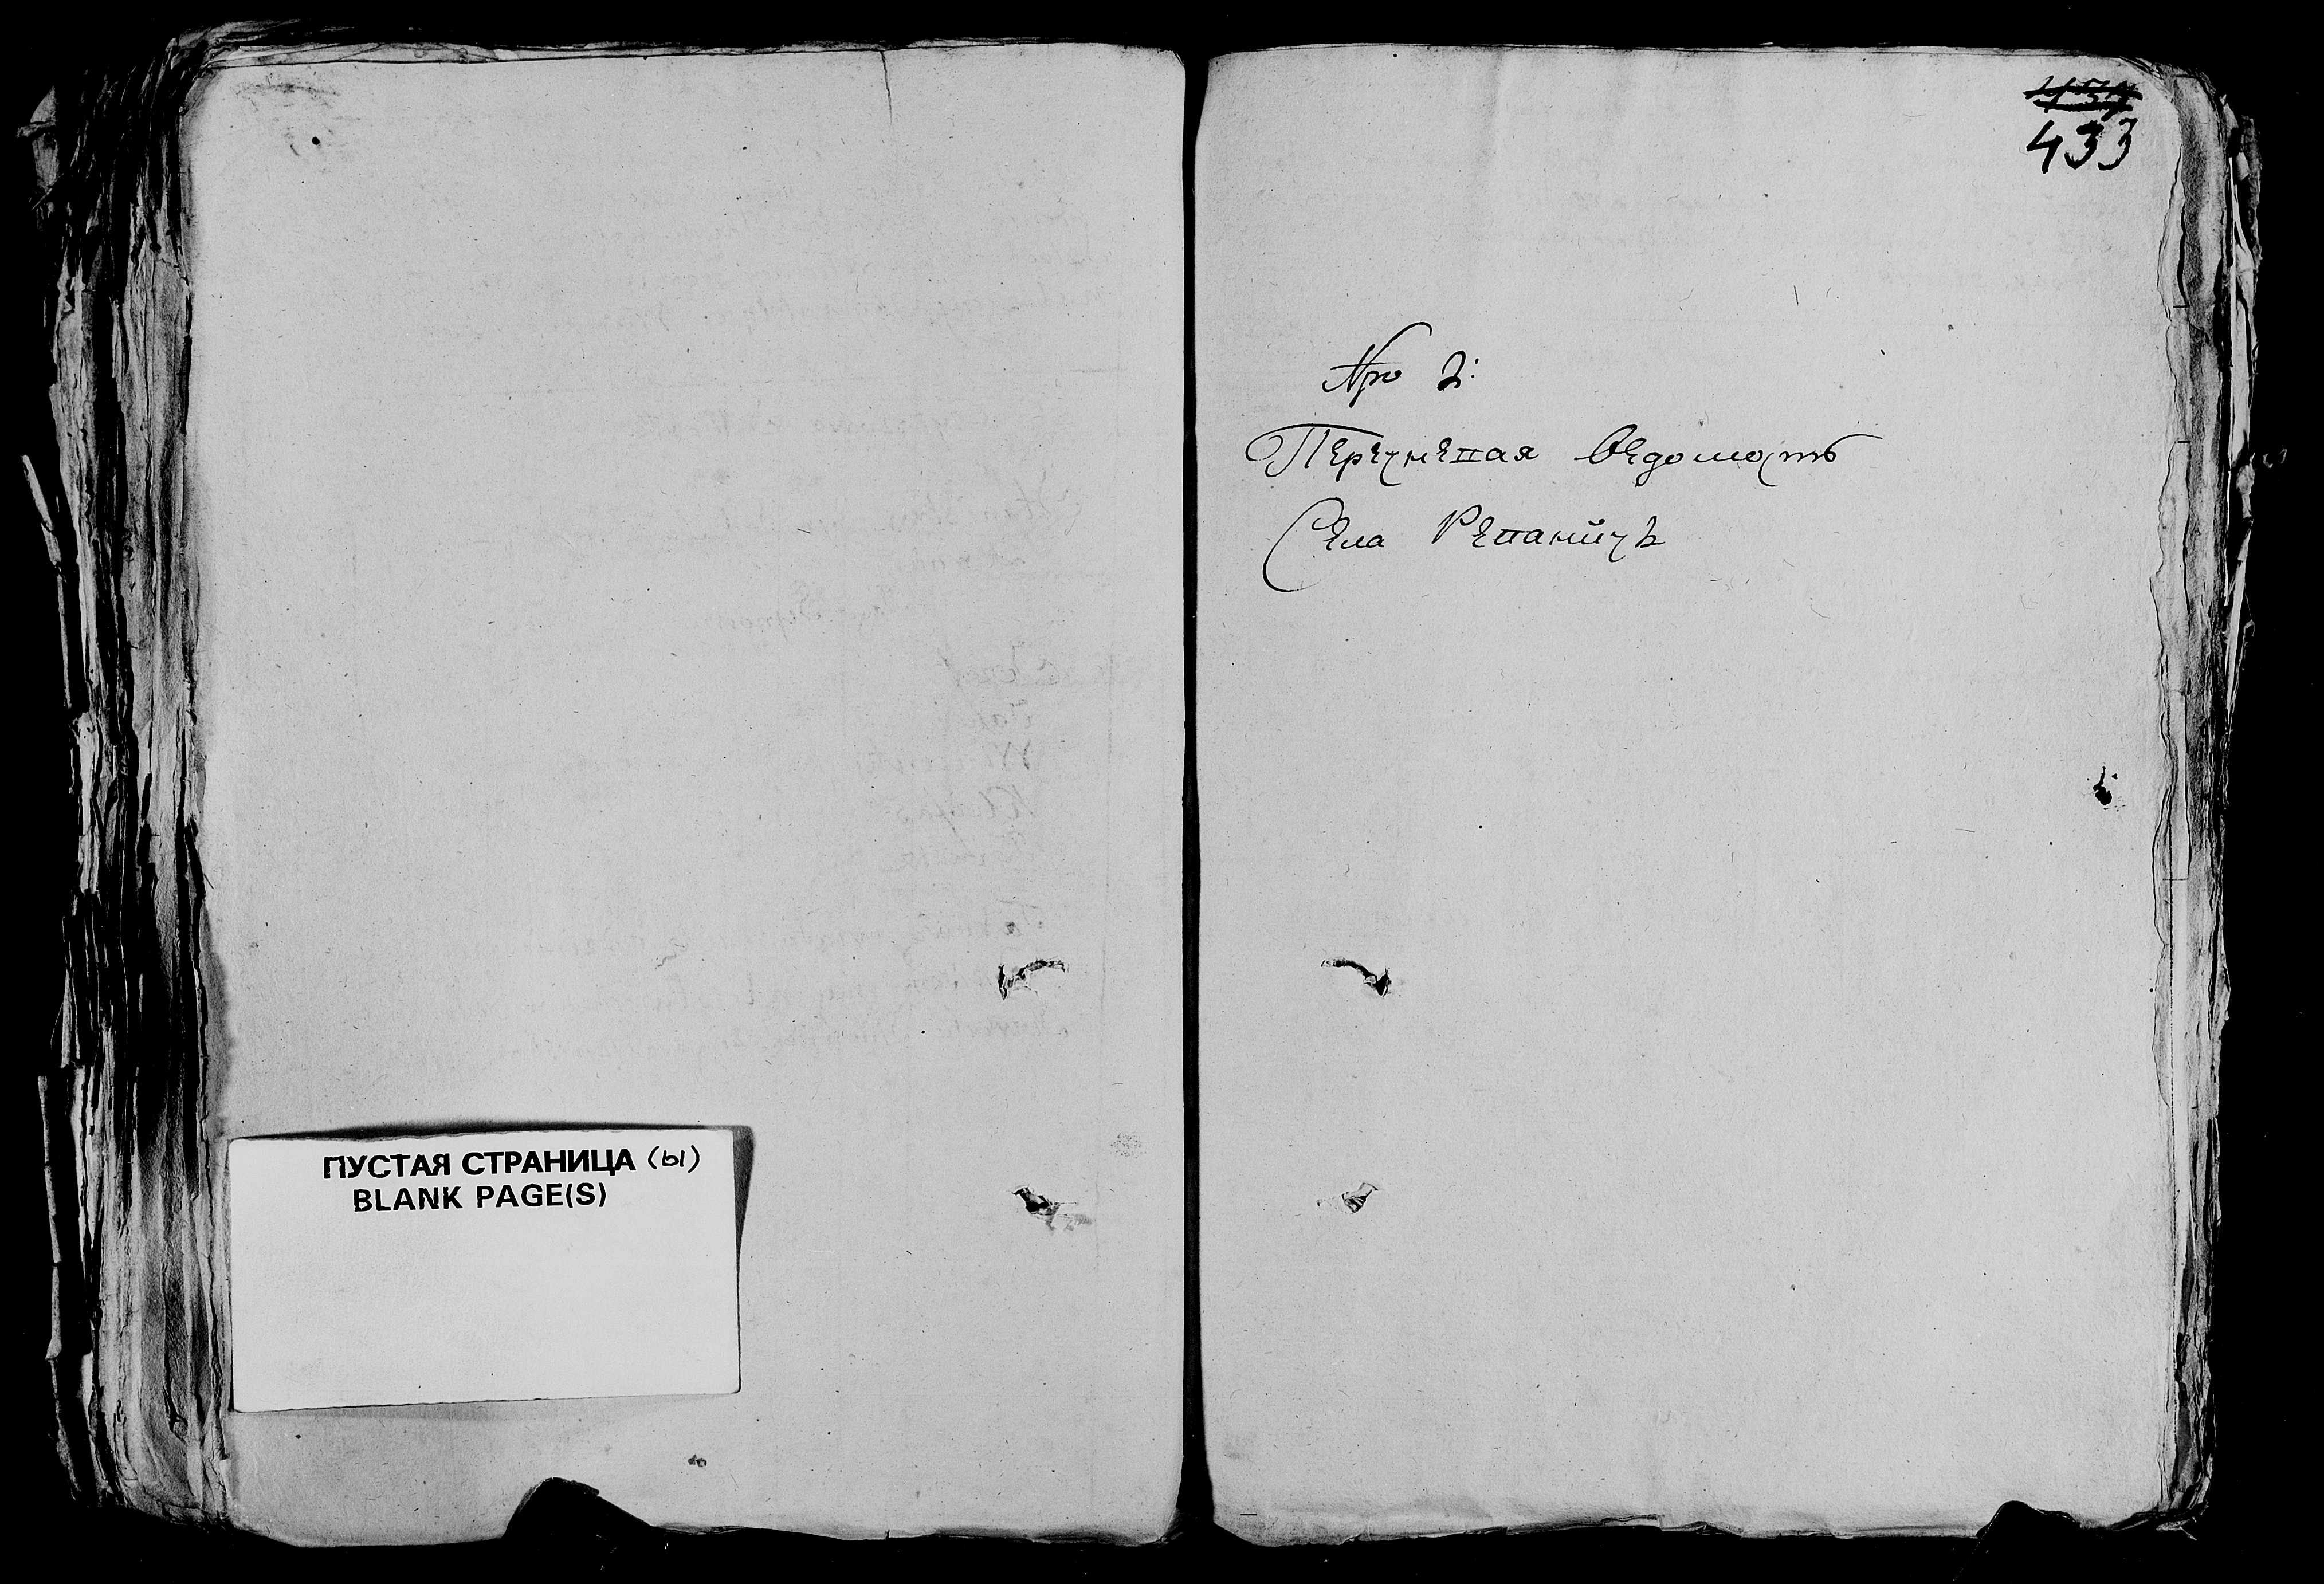 ПУСТАЯ СТРАНИЦА (ы)
BLANK PAGE(S)
433
Nro 2:
Перечнепая ведомость
Села Репаничъ